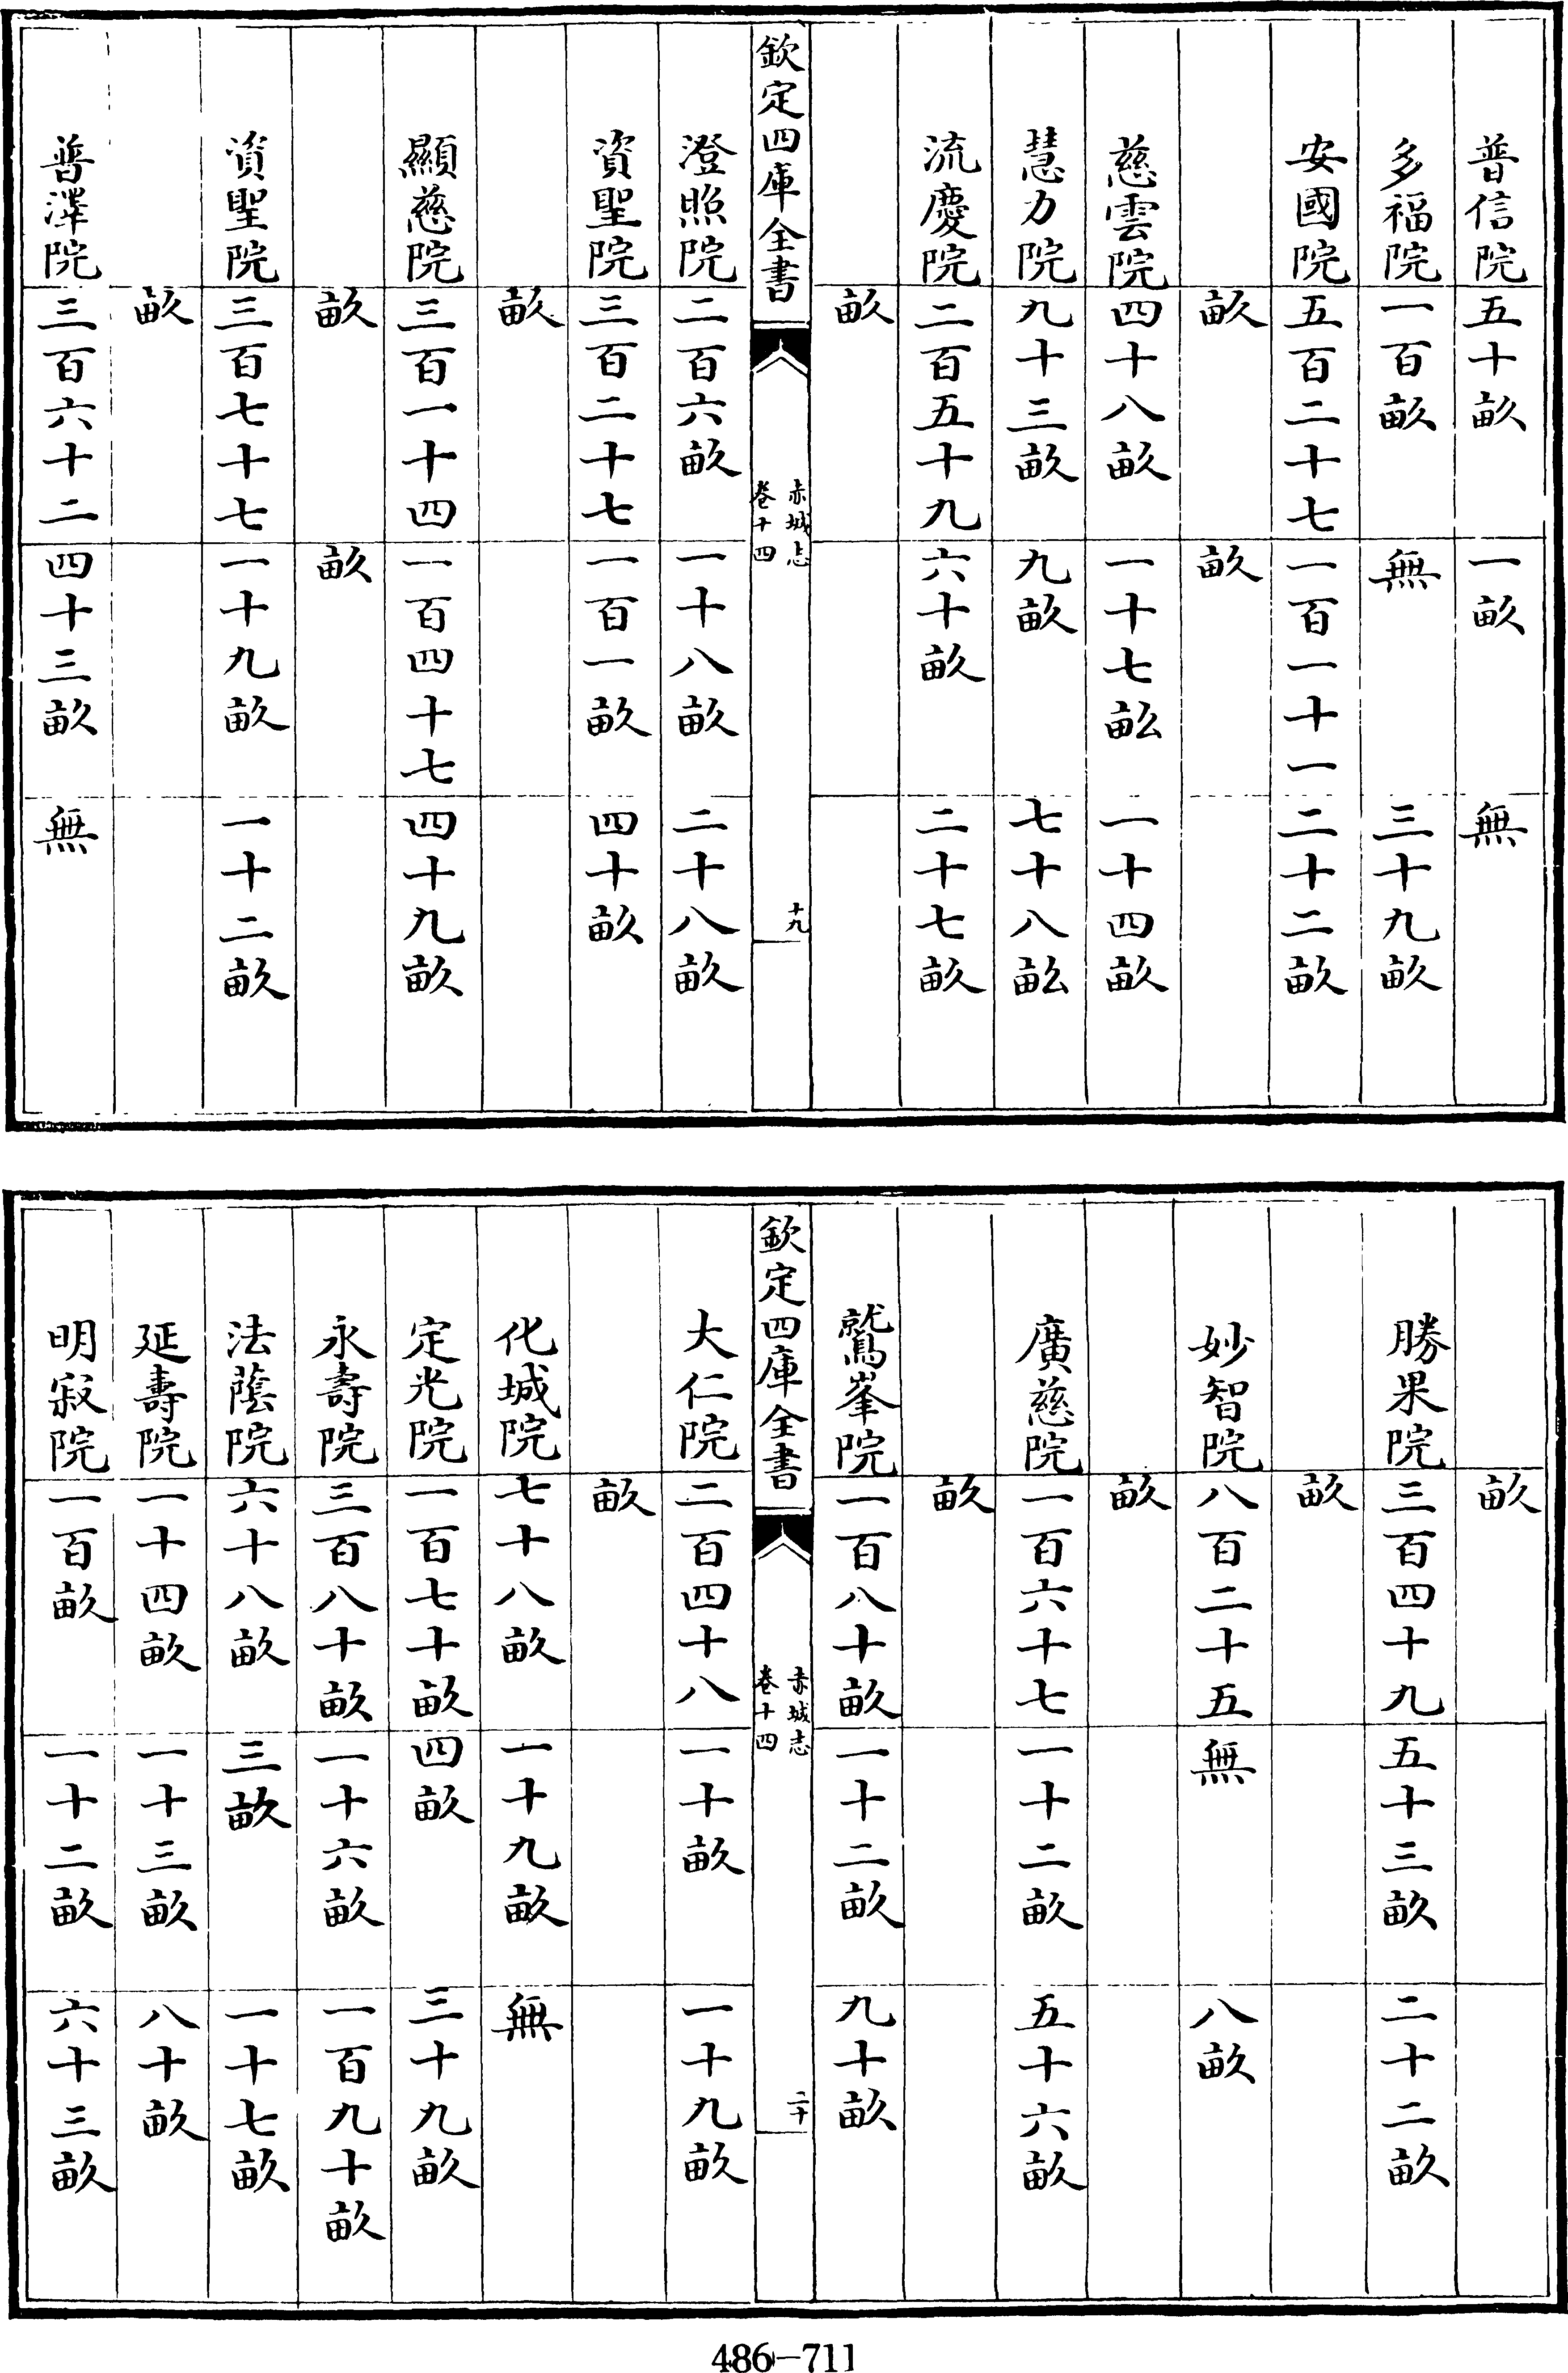 普信院 五十畝 一畝 無
多福院 一百畝 無 三十九畝
安國院 五百二十七 一百一十一 二十二畝
畝 畝
慈雲院 四十八畝 一十七畝 一十四畝
慧力院 九十三畝 九畝 七十八畝
流慶院 二百五十九 六十畝 二十七畝
畝
欽定四庫全書 赤城志 卷十四 十九
澄照院 二百六畝 一十八畝 二十八畝
資聖院 三百二十七 一百一畝 四十畝
畝
顯慈院 三百一十四 一百四十七 四十九畝
畝 畝
資聖院 三百七十七 一十九畝 一十二畝
畝
普澤院 三百六十二 四十三畝 無
畝
勝果院 三百四十九 五十三畝 二十二畝
畝
妙智院 八百二十五 無 八畝
畝
廣慈院 一百六十七 一十二畝 五十六畝
畝
鷲峯院 一百八十畝 一十二畝 九十畝
欽定四庫全書 赤城志 卷十四 二十
大仁院 二百四十八 一十畝 一十九畝
畝
化城院 七十八畝 一十九畝 無
定光院 一百七十畝 四畝 三十九畝
永壽院 三百八十畝 一十六畝 一百九十畝
法蔭院 六十八畝 三畝 一十七畝
延壽院 一十四畝 一十三畝 八十畝
明寂院 一百畝 一十二畝 六十三畝
486-711